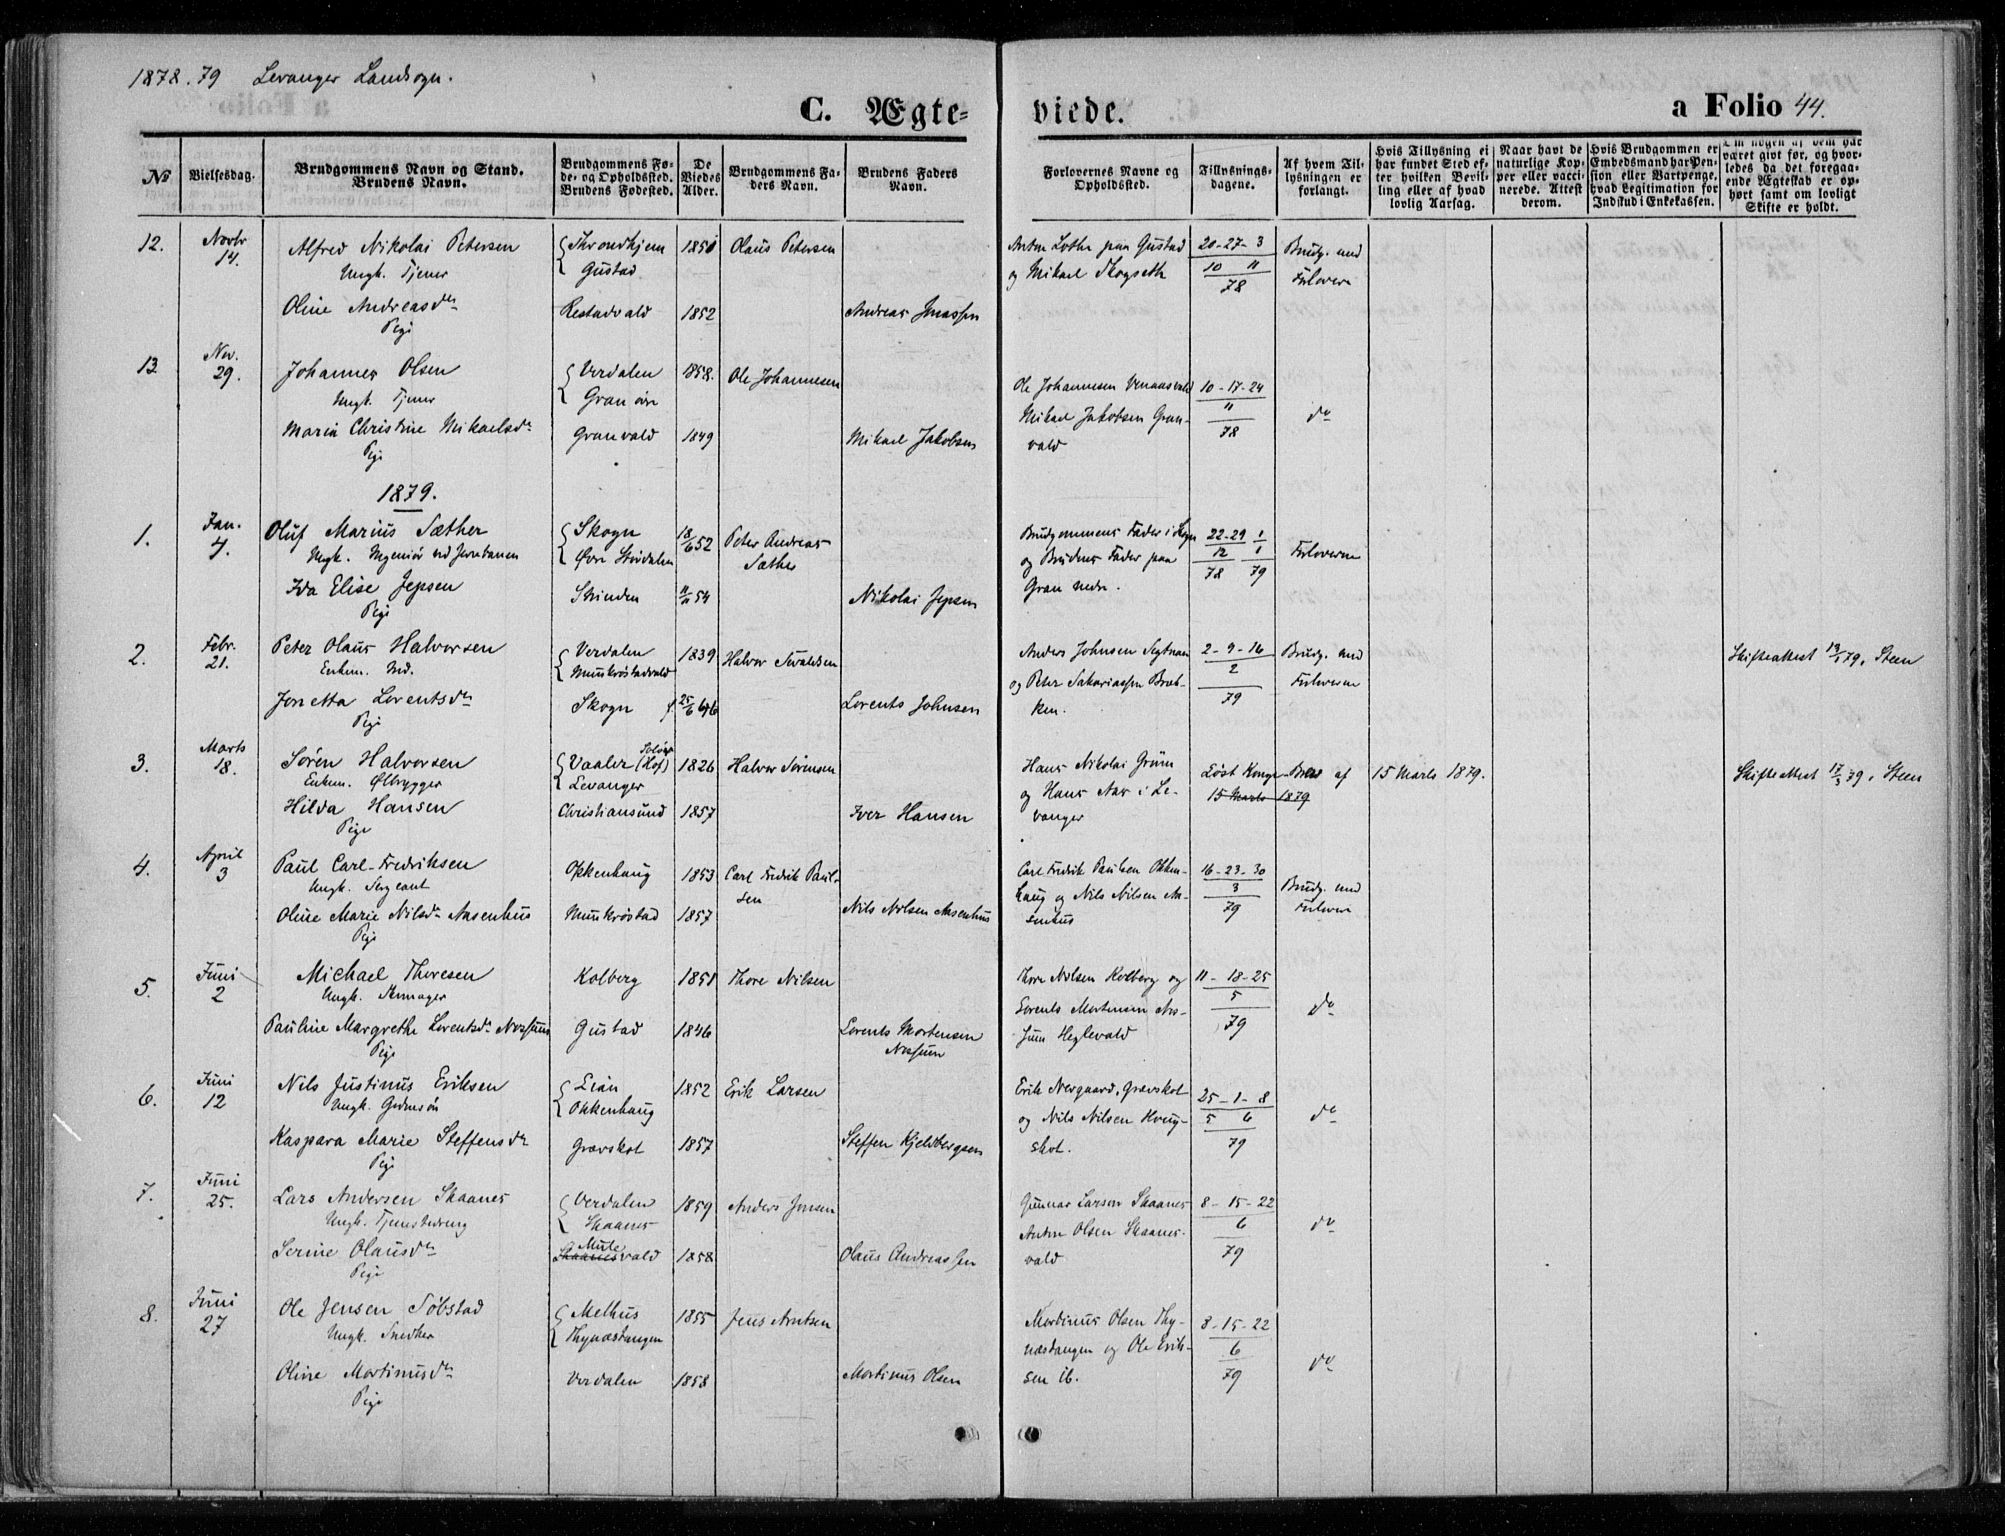 1878.79 Levanger Landsogn.
C. Ægteviede.
a Folio 44.
No
Vielsesdag.
Brudgommens Navn og Stand.
Brudens Navn.
Brudgommens Føde- og Opholdssted.
Brudens Fødested.
De Viedes Alder.
Brudgommens Faders Navn.
Brudens Faders Navn.
Forlovernes Navne og Opholdssted.
Tillysningsdagene.
Af hvem Tillysningen er forlangt.
Hvis Tillysning ei har fundet Sted efter hvilken Bevilling eller af hvad lovlig Aarsag.
Naar havt de naturlige Kopper eller vaccinerede. Attest derom.
Hvis Brudgommen er Embedsmand har Pension eller Vartpenge, hvad Legitimation for Indskud i Enkekassen.
Om nogen af dem har været givt før, og hvorledes da det foregaaende Ægteskab er ophørt samt om lovligt Skifte er holdt.
12. Novbr 14. Alfred Nikolai Petersen Throndhjem 1850 Olaus Petersen Anton Lothe paa Gustad 20-27-3 Brudg. med
Ungk. Tjener Gustad og Mikael Skogseth 10 11 Forlovere
78
Oline Andreasdr Restadvald 1852 Andreas Jonassen
Pige
13. Nov. 29. Johannes Olsen Verdalen 1858. Ole Johannesen Ole Johannesen 10-17-24
Ungk. Tjener Granøre Mikael Jakobsen Gran- 11 do
Maria Christine Mikaelsdr Granvald 1849 Mikael Jakobsen vald 78
Pige
1879.
1. Jan. 4. Oluf Marius Sæther Skogn 18/6 52 Peter Andreas Brudgommens Fader i Skogn 22-29 1
Ungk. Ingeniør ved Jernbanen Øvre Stördalen Sæther og Brudens Fader paa 12 1 Forloverne
Ida Elise Jepsen Strinden 11/11 54 Nikolai Jepsen Gran nedre. 78 79
Pige
2. Febr. 21. Peter Olaus Halvorsen Verdalen 1839 Halvor Sivaldsen Anders Johnsen Segtnan 2-9-16 Brudg. med Skifteattest 19/1 79, Steen
Enkem. Ind. Munkrøstadvald og Peter Sakariassen Bræk- 2 Forloverne
Jonetta Lorentsdr Skogn f 25/6 46 Lorents Johnsen ken. 79
Pige
3. Marts 18. Søren Halvorsen Vaaler (Hof) Soløer 1826 Halvor Sørensen Hans Nikolai Grønn Løst Konge-Brev af 15 Marts 1879. Skifteattest 17/3 79, Steen
Enkem. Ølbrygger Levanger og Hans Aas i Le- 15 Marts 1879
Hilda Hansen Christiansund 1857 Iver Hansen vanger
Pige
4. April 3 Paul Carl-Fredriksen Okkenhaug 1853 Carl Fredrik Paul- Carl Fredrik Paulsen Okken- 16-23-30
Ungk. Sergeant sen haug og Nils Nilsen Aa- 3 Brudg. med
Oline Marie Nilsdr Aasenhus Munkrøstad 1857 Nils Nilsen Aasenhus senhus 79 Forlovere
Pige
5. Juni 2 Michael Thoresen Kolberg 1851 Thore Nilsen Thore Nilsen Kolberg og 11-18-25
Ungk. Skomager Lorents Mortensen Nos- 5 do
Pauline Margrethe Lorentsdr Nossum Gustad 1846 Lorents Mortensen Nossum sum Heglevald 79
Pige
6. Juni 12 Nils Justinus Eriksen Lian 1852 Erik Larsen Erik Nergaard, Grævskot 25-1-8
Ungk. Gdmsøn Okkenhaug og Nils Nilsen 5 6 do
Kaspara Marie Steffensdr Grævskot 1857 Steffen Kjeldbergsen skot. 79
Pige
7. Juni 25. Lars Andersen Skaanes Verdalen 1859 Anders Jonsen Gunnar Larsen Skaanes 8-15-22
Ungk. Tjenestedreng Skaanes Anton Olsen Skaanes- 6 do
Serine Olausdr Skaanesvald Mule 1858 Olaus Andreassen vald 79
Pige
8. Juni 27 Ole Jensen Søbstad Melhus 1855 Jens Arntsen Mortinus Olsen Thy- 8-15-22
Ungk. Snedker Thynæstangen næstangen og Ole Erik- 6 do
Oline Mortinusdr Verdalen 1858 Mortinus Olsen sen ib. 79
Pige